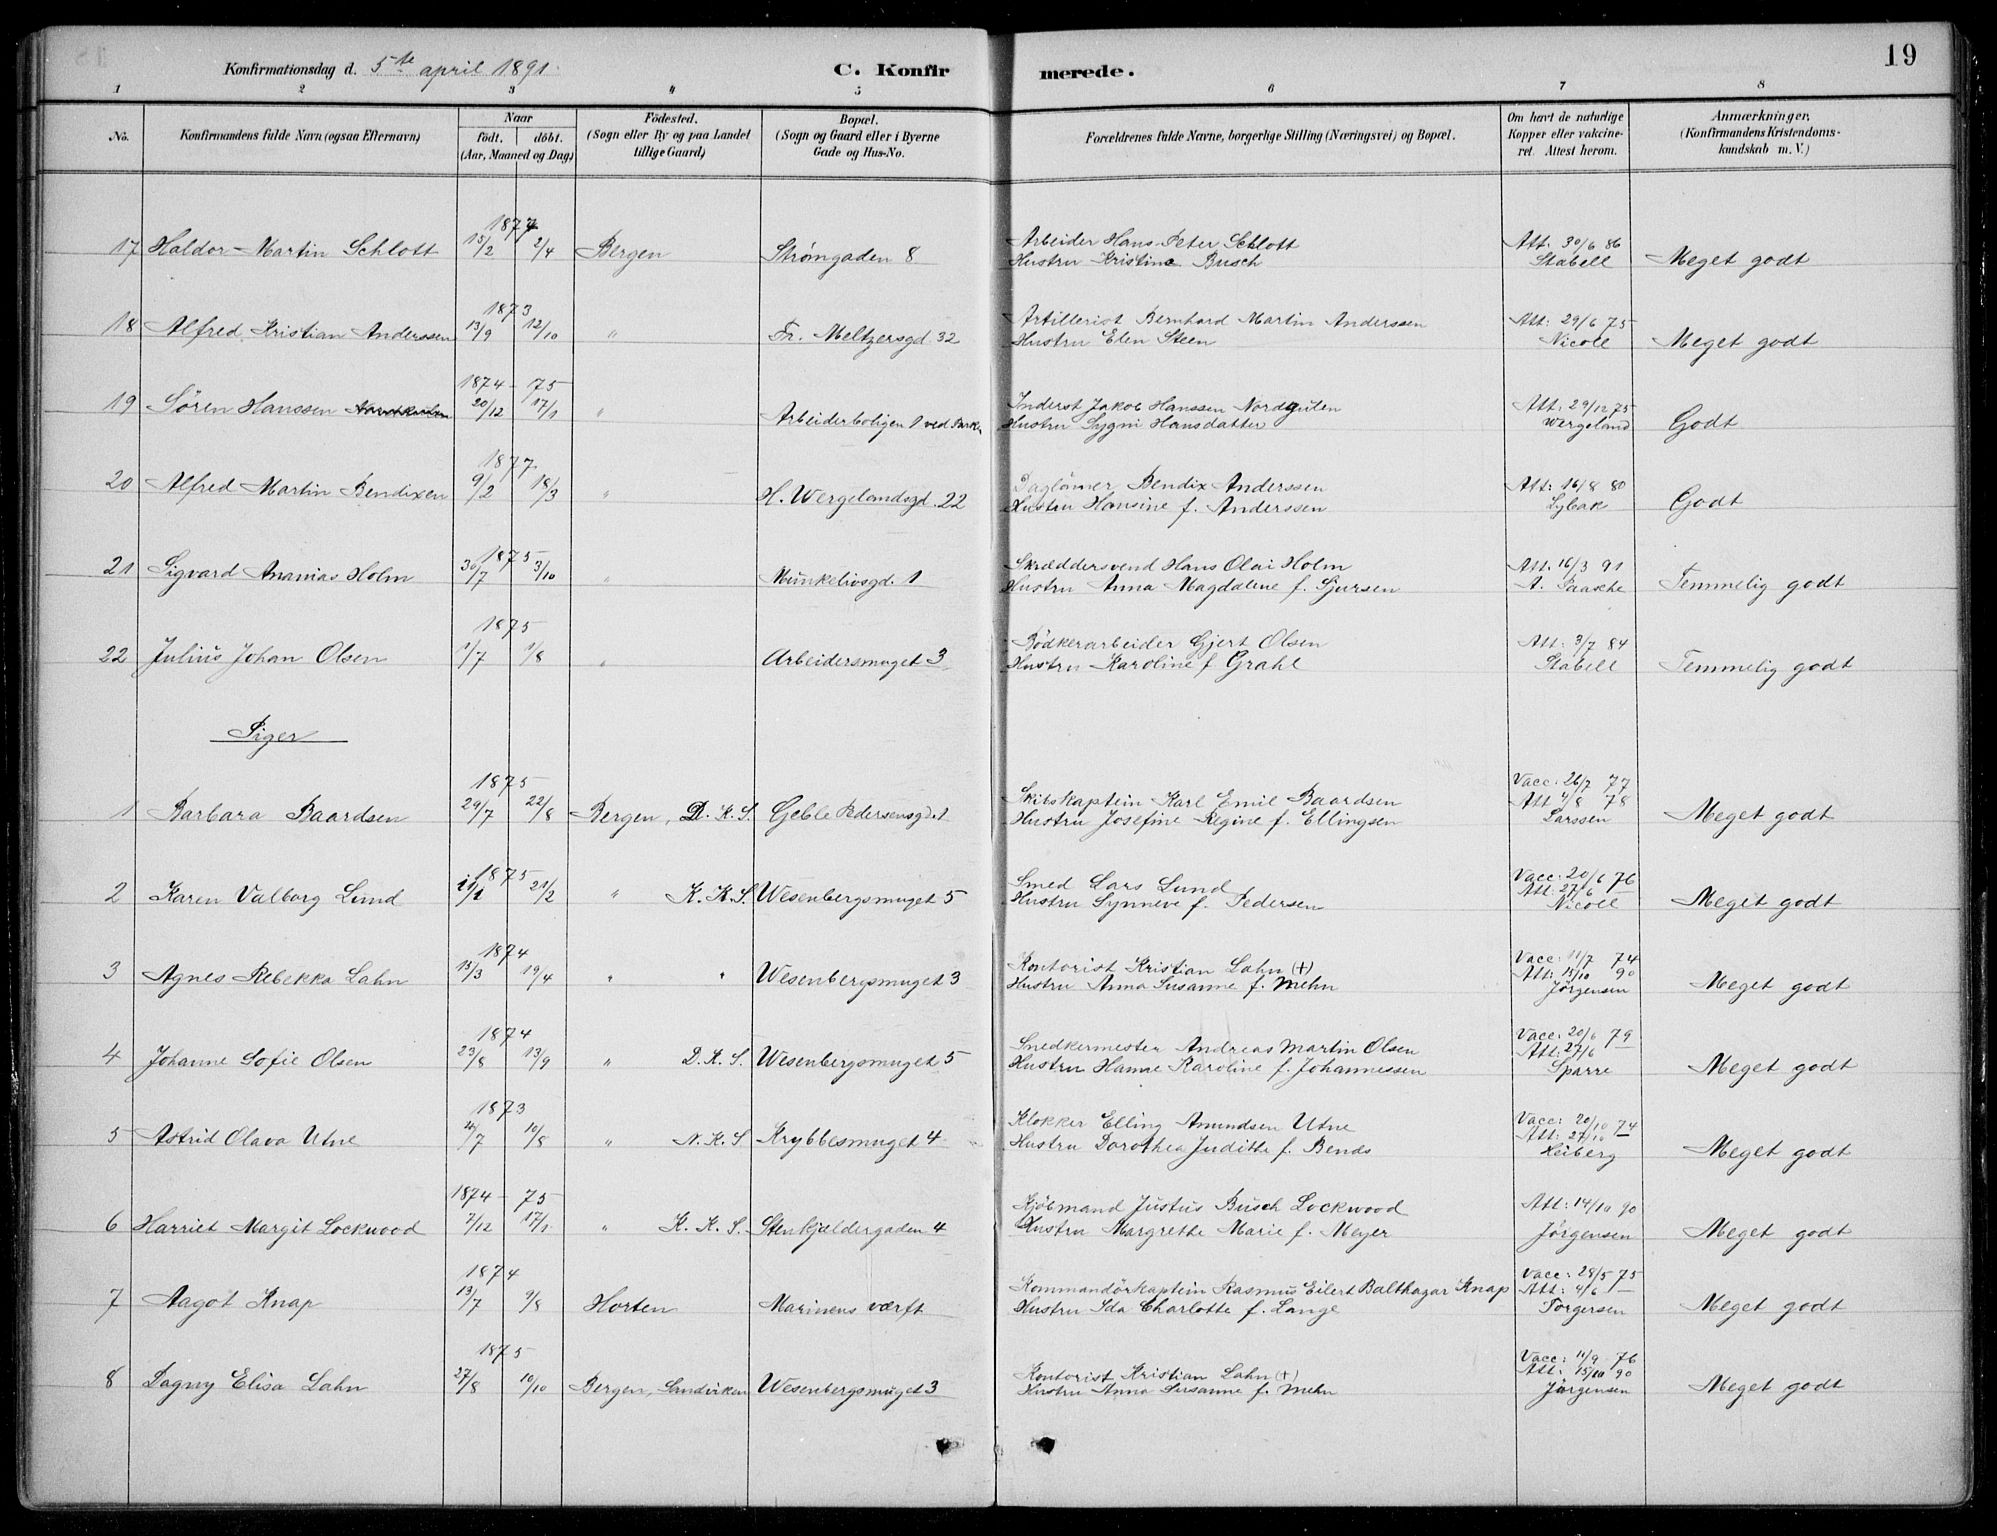 19
Konfirmationsdag d. 5te april 1891.
C. Konfirmerede.
1 2 3 4 5 6 7 8
No.
Konfirmandens fulde Navn (ogsaa Efternavn)
Naar
født. døbt.
(Aar, Maaned og Dag)
Fødested.
(Sogn eller By og paa Landet
tillige Gaard)
Bopæl.
(Sogn og Gaard eller i Byerne
Gade og Hus-No.
Forældrenes fulde Navne, borgerlige Stilling (Næringsvei) og Bopæl.
Om havt de naturlige
Kopper eller vakcine-
ret. Attest herom.
Anmærkninger.
(Konfirmandens Kristendoms-
kundskab m. V.)
1877
17 Haldor Martin Schlott 15/2 2/4 Bergen Strømgaden 8
Arbeider Hans Peter Schlott
Hustru Kristine Busch
Att: 30/6 86
Stabell
Meget godt
1873
18 Alfred Kristian Anderssen 13/9 12/10 " Fr. Meltzersgd. 32
Artillerist Bernhard Martin Anderssen
Hustru Elen Steen
Att: 29/6 75
Nicoll
Meget godt
1874 - 75
19 Sören Hanssen 20/12 17/1 " Arbeiderboligen 1 ved Parken
Inderst Jakob Hanssen Nordguten
Hustru Sygni Hansdatter
Att: 29/12 75
Wergeland
Godt
1877
20 Alfred Martin Bendixen 9/2 18/3 " H. Wergelandsgd. 22
Daglönner Bendix Anderssen
Hustru Hansine f. Anderssen
Att: 16/8 80
Lybak
Godt
1875
21 Sigvard Ananias Holm 30/7 3/10 " Munkelivsgd. 1
Skræddersvend Hans Olai Holm
Hustru Anna Magdalene f. Sjursen
Att. 16/3 91
A. Paasche
Temmelig godt
1875
22 Julius Johan Olsen 1/7 1/8 " Arbeidersmuget 3
Bödkerarbeider Gjert Olsen
Hustru Karoline f. Grahl
Att: 3/7 84
Stabell
Temmelig godt
Piger
1875
1 Barbara Baardsen 29/7 22/8 Bergen, D. K. S. Geble Pedersensgd. 1
Skibskaptein Karl Emil Baardsen
Hustru Josefine Regine f. Ellingsen
Vacc: 26/7 77
Att 4/8 78
Larssen
Meget godt
1875
2 Karen Valborg Lund 11/1 21/2 " K. K. S. Wesenbergsmuget 5
Smed Lars Lund
Hustru Synneve f. Pedersen
Vacc: 20/6 76
Att: 27/6 —
Nicoll
Meget godt
1874
3 Agnes Rebekka Lahn 15/3 19/4 " " Wesenbergsmuget 3
Kontorist Kristian Lahn (+)
Hustru Anna Susanne f. Mehn
Vacc: 11/7 74
Att: 15/10 90
Jörgensen
Meget godt
1874
4 Johanne Sofie Olsen 23/8 13/9 " D. K. S. Wesenbergsmuget 5
Snedkermester Andreas Martin Olsen
Hustru Hanne Karoline f. Johannessen
Vacc: 20/6 79
Att: 27/6
Sparre
Meget godt
1873
5 Astrid Olava Utne 4/7 10/8 " N. K. S. Krybbesmuget 4
Klokker Elling Amundsen Utne
Hustru Dorothea Judithe f. Bends
Vacc: 20/10 74
Att: 27/10 —
Heiberg
Meget godt
1874 - 75
6 Harriet Margit Lockwood 7/12 17/1 " K. K. S. Stenkjældergaden 4
Kjöbmand Justus Busch Lockwood
Hustru Margrethe Marie f. Meyer
Att: 14/10 90
Jörgensen
Meget godt
1874
7 Aagot Knap 13/7 9/8 Horten Marinens værft
Kommandörkaptein Rasmus Eilert Balthazar Knap
Hustru Ida Charlotte f. Lange
Vacc: 28/5 75
Att: 4/6 —
Torgersen
Meget godt
1875
8 Dagny Elisa Lahn 27/8 10/10 Bergen, Sandviken Wesenbergsmuget 3
Kontorist Kristian Lahn (+)
Hustru Anna Susanne f. Mehn
Vacc: 11/9 76
Att: 15/10 90
Jörgensen
Meget godt